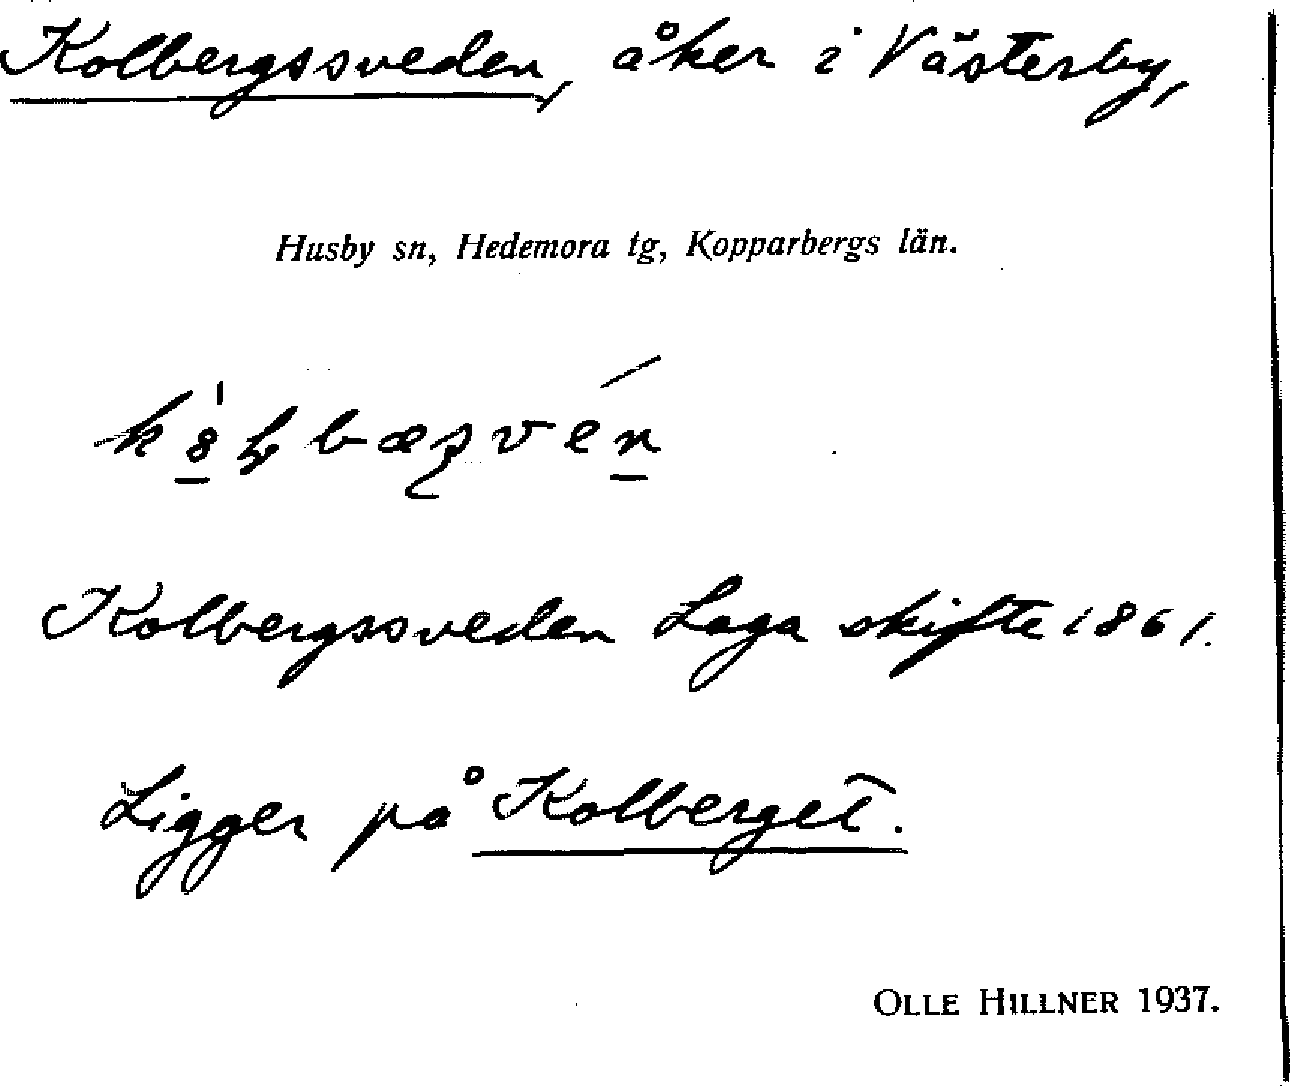 Kolbergssveden, åker i Västerby,
Husby sn, Hedemora tg, Kopparbergs län.
Kolbergssveden Laga skifte 1861.
Ligger på Kolberget.
OLLE HILLNER 1937.